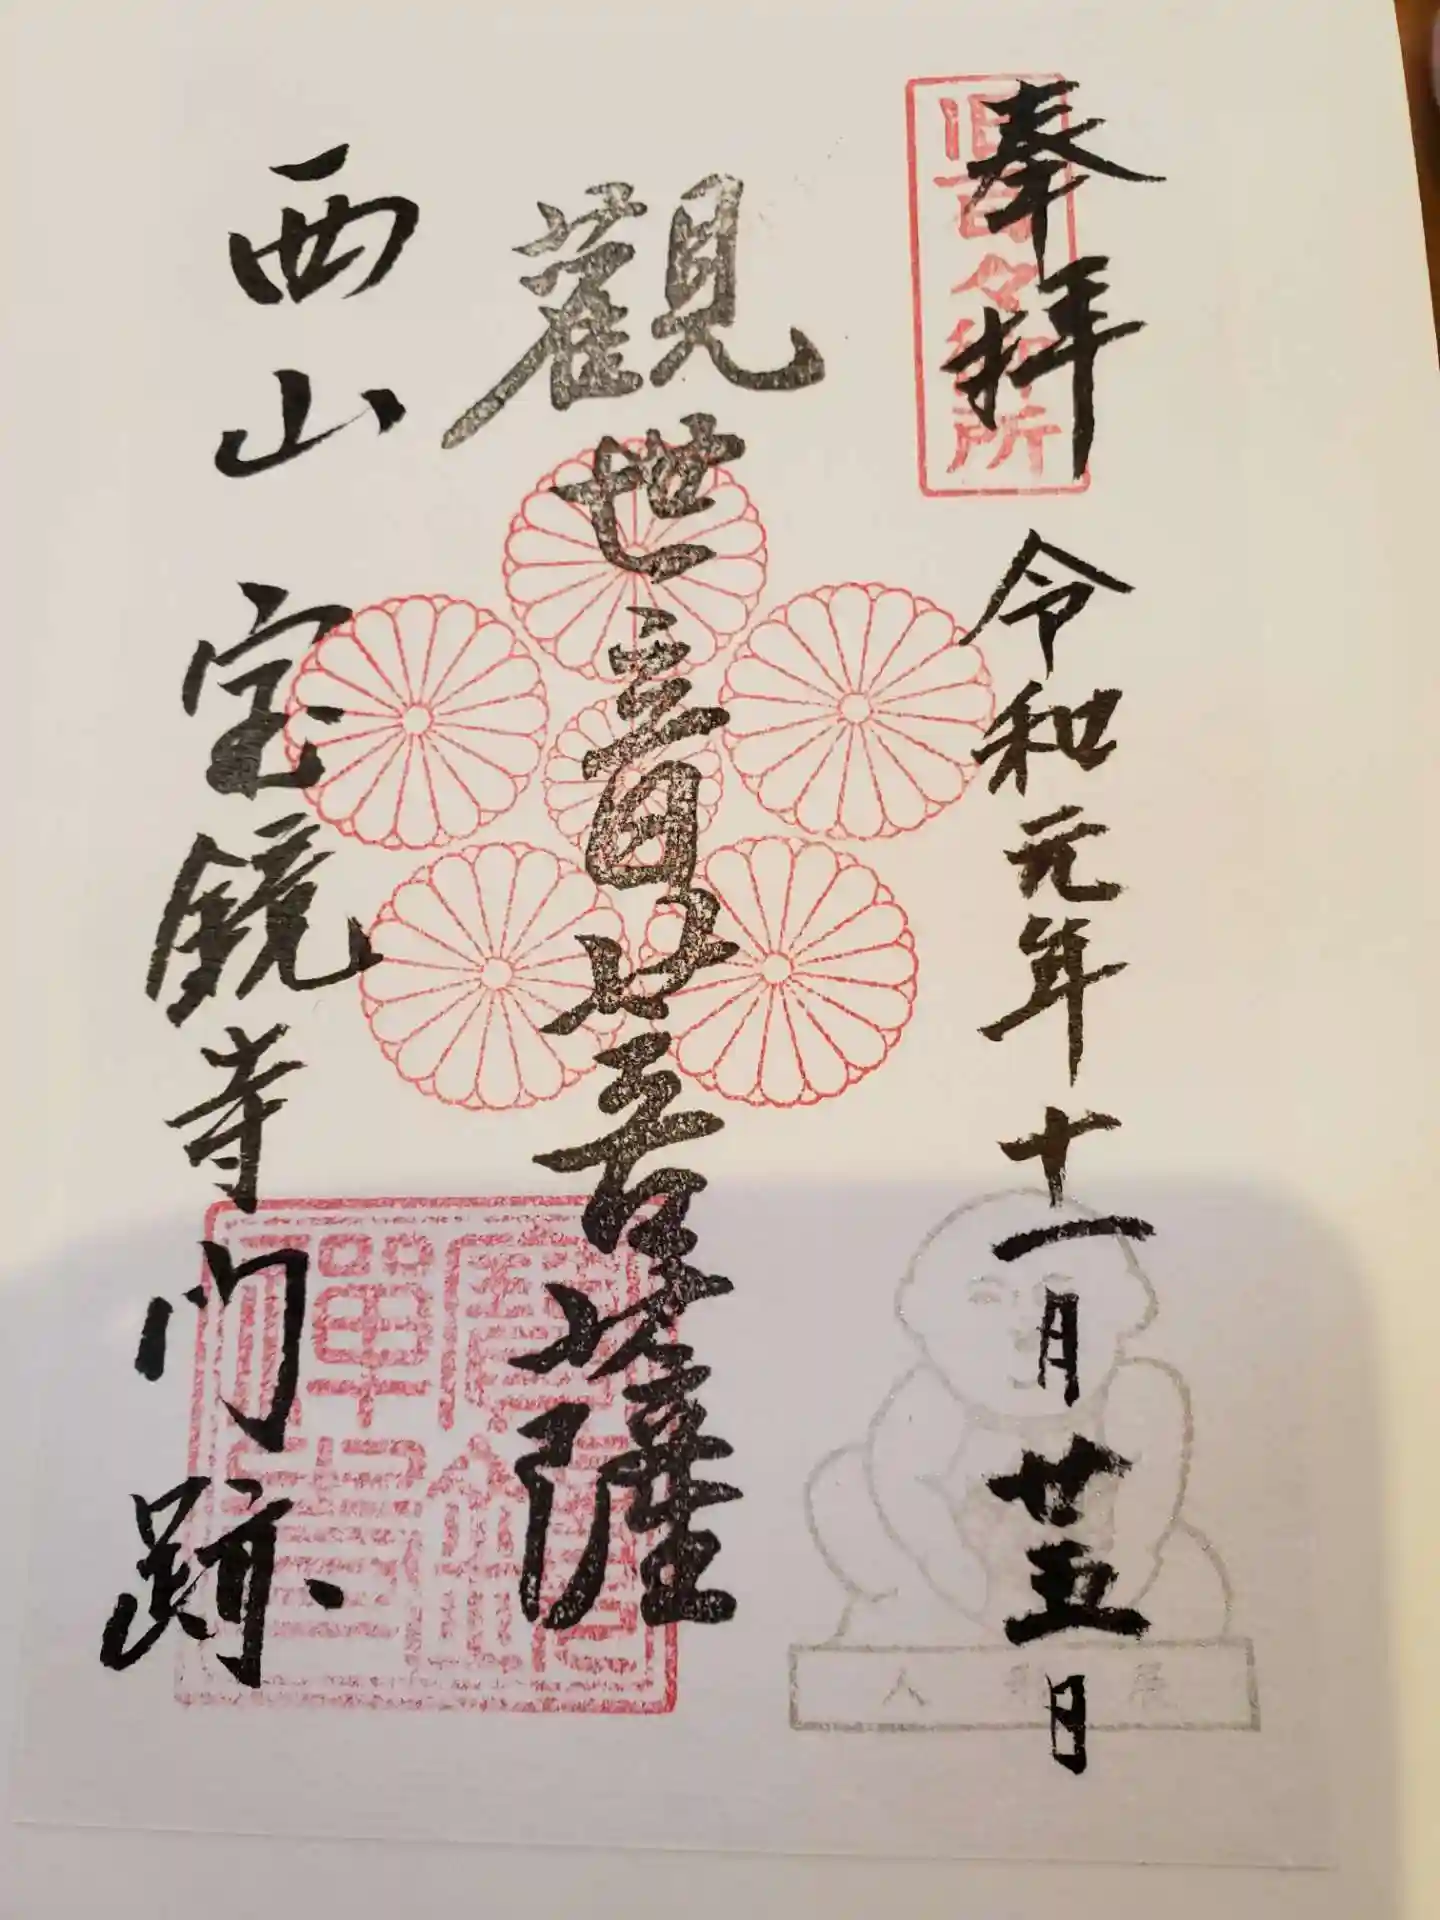 奉拝
旧百々御所
令和元年十一月廿五日
觀世音菩薩
西山宝鏡寺門跡
人形展